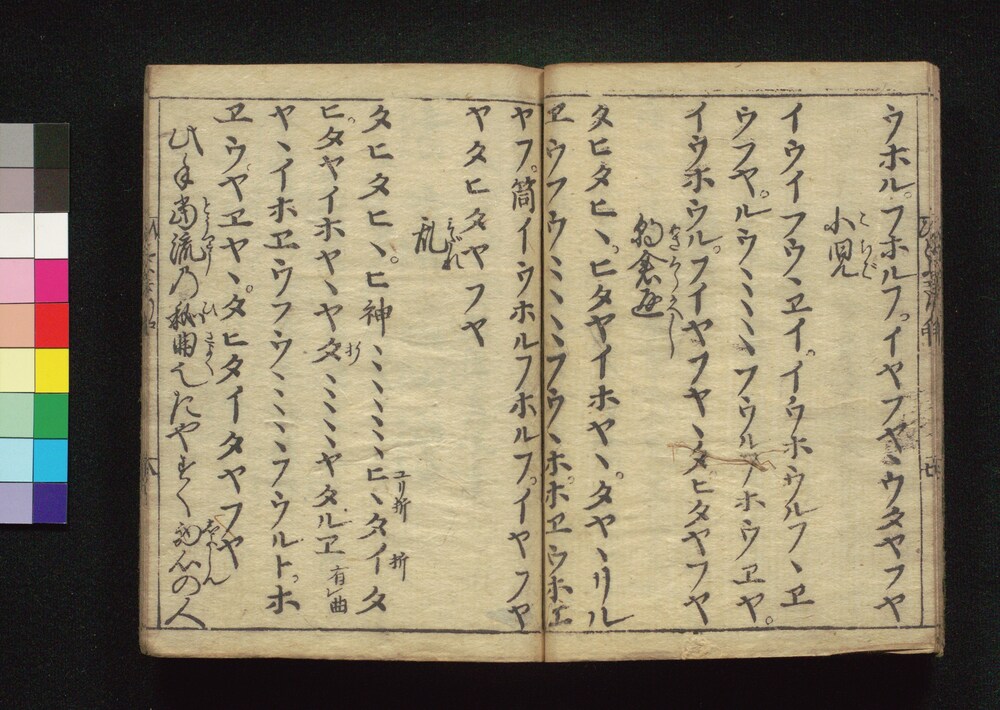 ウホル。フホルフ。イヤフヤヽウタヤフヤ
小児
こちご
イウイフウヽヱイ。イウホウルフヽヱ
ウフヤ。ルウヽミミミフウルフホウヱヤ。
イウホウル。フイヤフヤヽタヒタヤフヤ
タヒタヒヽ。ヒタヤイホヤヽ。タヤヽリル
ヱウフウヽミヽヽフウヽホ。ホヱウホヱ
ヤフ。筒イウホルフホルフ。イヤフヤ
ヤタヒタヤフヤ
乱
みだれ
タヒタヒヽ。ヒ神ミミミミミヒヽタイタ
ユリ折
折
ヒ。タヤイホヤヽヤタミミミヤタルヱ
折
有曲
ヤヽイホヱウフウミミミフウルトホ
ヱウヤヱヤヽ。タヒタイタヤフヤ
此手当流乃秘曲也たやすく
ひきよく
の人